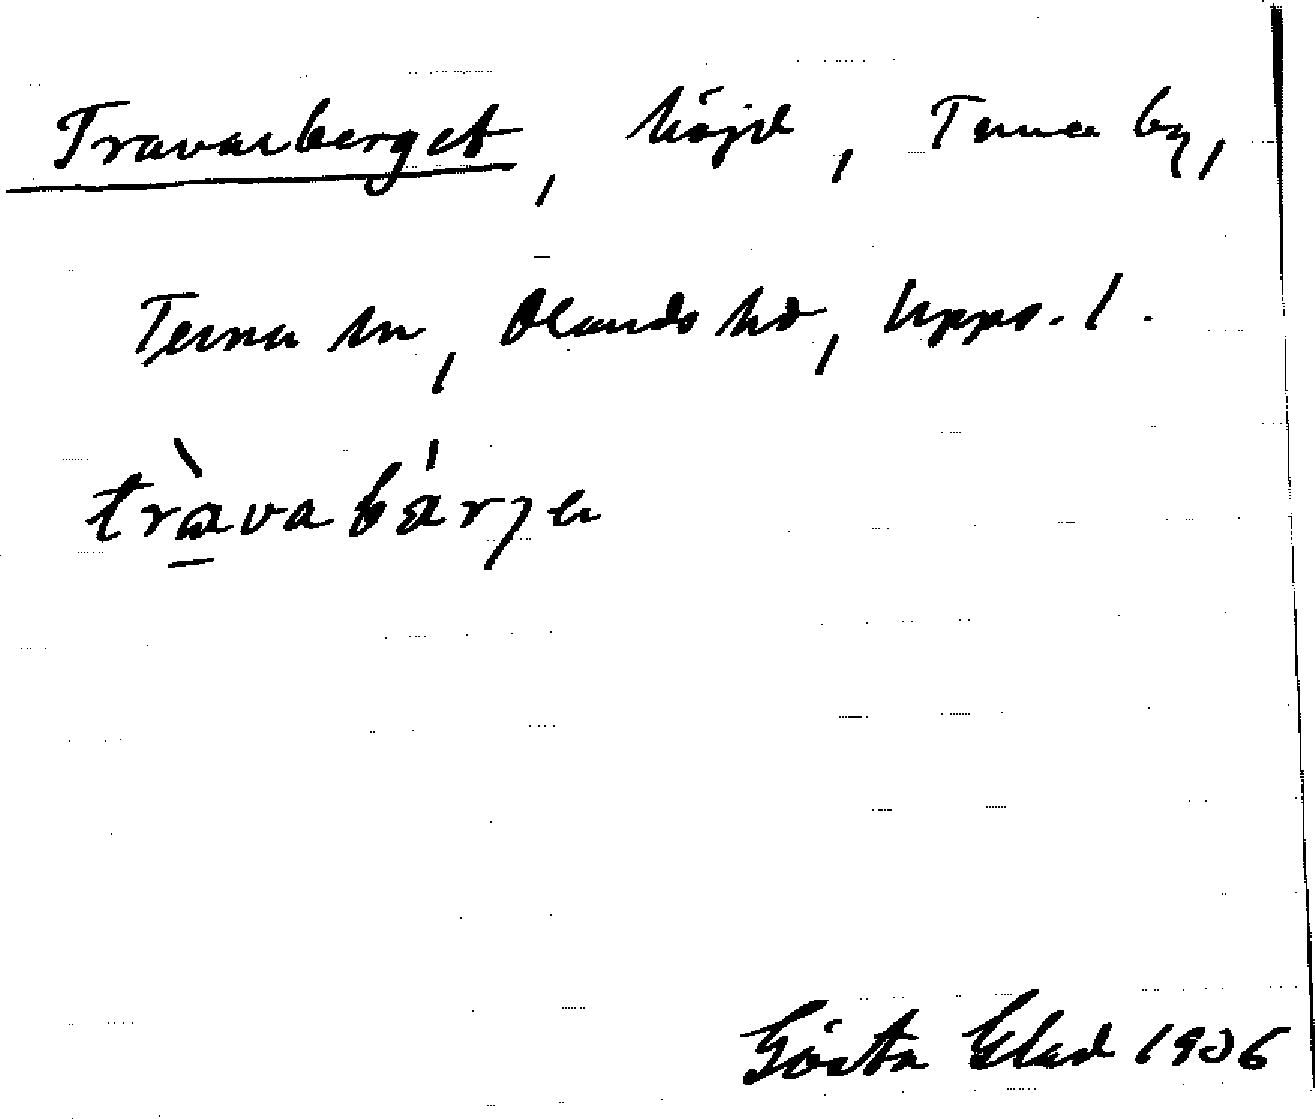 Travarberget, höjd, Tuna by,
Tuna sn, Olands hd, Upps. l.
tràvabárje
Gösta Elad 1936